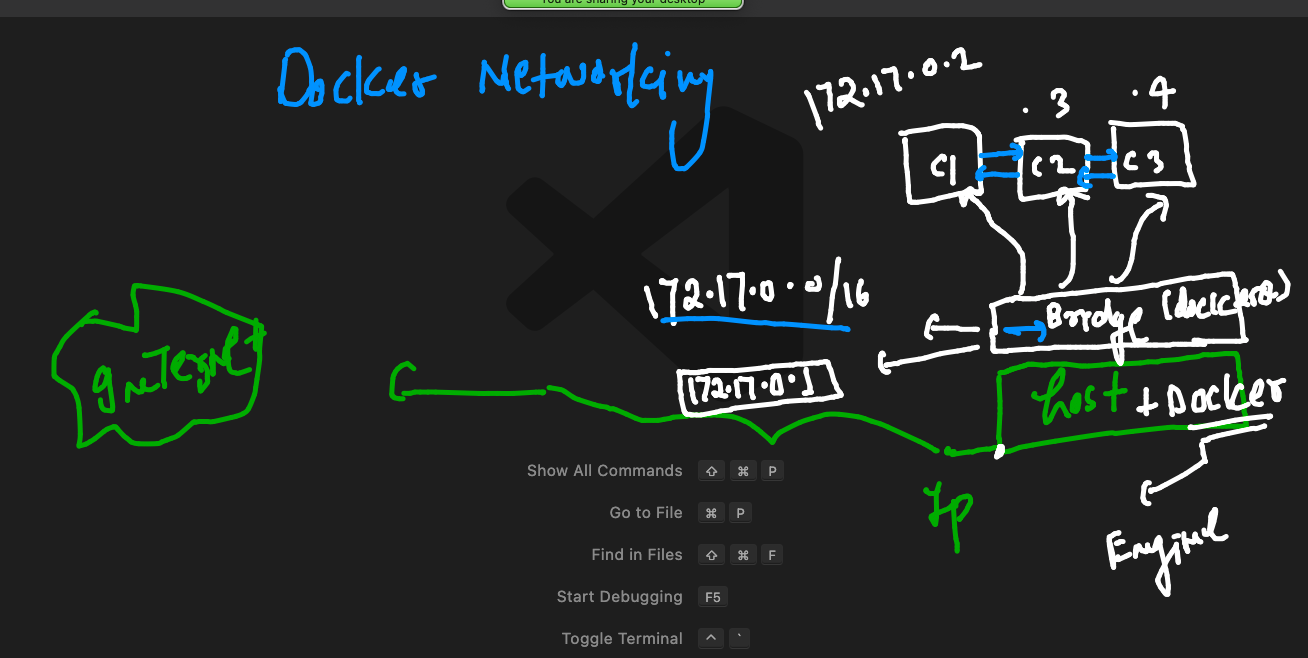 You are sharing your desktop
Docker Networking
172.17.0.2
.3
.4
C1
C2
C3
172.17.0.0/16
Bridge (docker0)
172.17.0.1
gnTernet
host + Docker
Ip
Engine
Show All Commands ⇧ ⌘ P
Go to File ⌘ P
Find in Files ⇧ ⌘ F
Start Debugging F5
Toggle Terminal ^ `